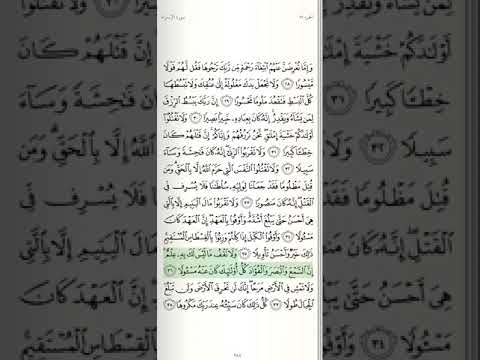 سورة الإسراء
الجزء ١٥
وَإِمَّا تُعْرِضَنَّ عَنْهُمُ ٱبْتِغَآءَ رَحْمَةٍ مِّن رَّبِّكَ تَرْجُوهَا فَقُل لَّهُمْ قَوْلًا
مَّيْسُورًا ٢٨ وَلَا تَجْعَلْ يَدَكَ مَغْلُولَةً إِلَىٰ عُنُقِكَ وَلَا تَبْسُطْهَا
كُلَّ ٱلْبَسْطِ فَتَقْعُدَ مَلُومًا مَّحْسُورًا ٢٩ إِنَّ رَبَّكَ يَبْسُطُ ٱلرِّزْقَ
لِمَن يَشَآءُ وَيَقْدِرُ ۚ إِنَّهُۥ كَانَ بِعِبَادِهِۦ خَبِيرًۢا بَصِيرًا ٣٠ وَلَا تَقْتُلُوٓا۟
أَوْلَٰدَكُمْ خَشْيَةَ إِمْلَٰقٍ ۖ نَّحْنُ نَرْزُقُهُمْ وَإِيَّاكُمْ ۚ إِنَّ قَتْلَهُمْ كَانَ
خِطْـًٔا كَبِيرًا ٣١ وَلَا تَقْرَبُوا۟ ٱلزِّنَىٰٓ ۖ إِنَّهُۥ كَانَ فَٰحِشَةً وَسَآءَ
سَبِيلًا ٣٢ وَلَا تَقْتُلُوا۟ ٱلنَّفْسَ ٱلَّتِى حَرَّمَ ٱللَّهُ إِلَّا بِٱلْحَقِّ ۗ وَمَن
قُتِلَ مَظْلُومًا فَقَدْ جَعَلْنَا لِوَلِيِّهِۦ سُلْطَٰنًا فَلَا يُسْرِف فِّى
ٱلْقَتْلِ ۖ إِنَّهُۥ كَانَ مَنصُورًا ٣٣ وَلَا تَقْرَبُوا۟ مَالَ ٱلْيَتِيمِ إِلَّا بِٱلَّتِى
هِىَ أَحْسَنُ حَتَّىٰ يَبْلُغَ أَشُدَّهُۥ ۚ وَأَوْفُوا۟ بِٱلْعَهْدِ ۖ إِنَّ ٱلْعَهْدَ كَانَ
مَسْـُٔولًا ٣٤ وَأَوْفُوا۟ ٱلْكَيْلَ إِذَا كِلْتُمْ وَزِنُوا۟ بِٱلْقِسْطَاسِ ٱلْمُسْتَقِيمِ ۚ
ذَٰلِكَ خَيْرٌ وَأَحْسَنُ تَأْوِيلًا ٣٥ وَلَا تَقْفُ مَا لَيْسَ لَكَ بِهِۦ عِلْمٌ ۚ
إِنَّ ٱلسَّمْعَ وَٱلْبَصَرَ وَٱلْفُؤَادَ كُلُّ أُو۟لَٰٓئِكَ كَانَ عَنْهُ مَسْـُٔولًا ٣٦
وَلَا تَمْشِ فِى ٱلْأَرْضِ مَرَحًا ۖ إِنَّكَ لَن تَخْرِقَ ٱلْأَرْضَ وَلَن تَبْلُغَ
ٱلْجِبَالَ طُولًا ٣٧ كُلُّ ذَٰلِكَ كَانَ سَيِّئُهُۥ عِندَ رَبِّكَ مَكْرُوهًا ٣٨
٢٨٥